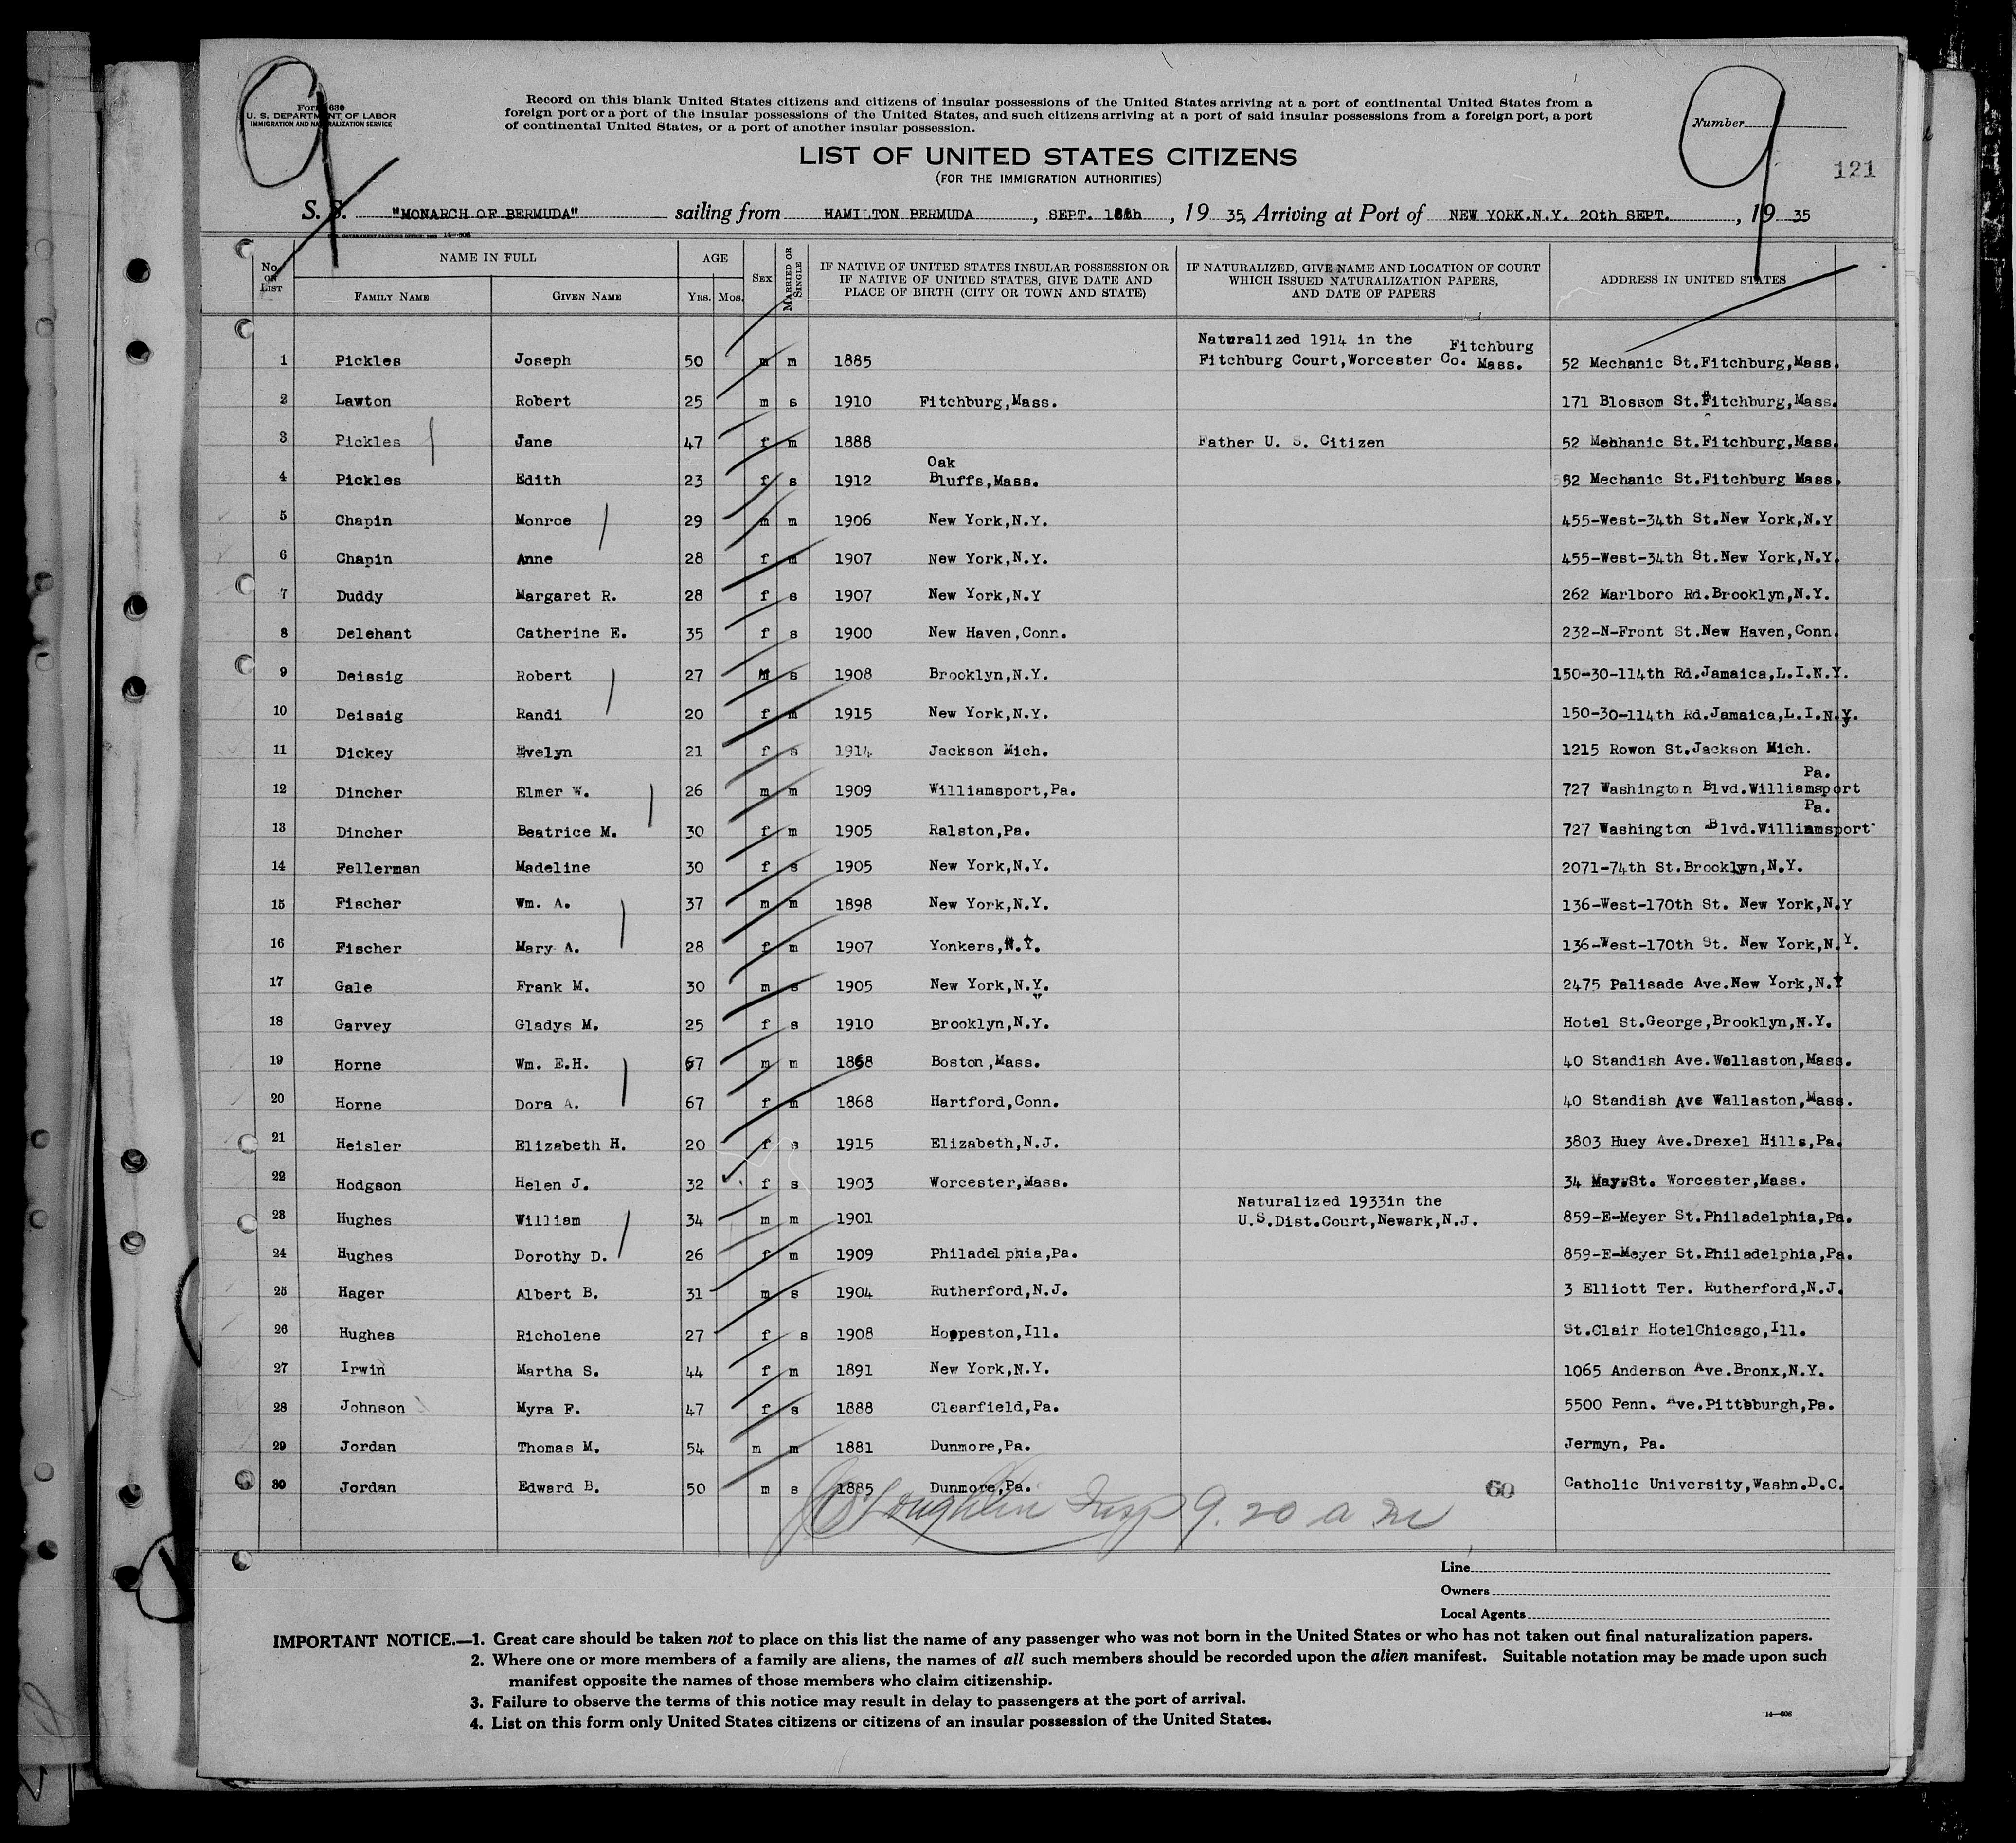 9
Form 630
U. S. DEPARTMENT OF LABOR
IMMIGRATION AND NATURALIZATION SERVICE
Record on this blank United States citizens and citizens of insular possessions of the United States arriving at a port of continental United States from a
foreign port or a port of the insular possessions of the United States, and such citizens arriving at a port of said insular possessions from a foreign port, a port
of continental United States, or a port of another insular possession.
9
Number
121
LIST OF UNITED STATES CITIZENS
(FOR THE IMMIGRATION AUTHORITIES)
S. S. "MONARCH OF BERMUDA" sailing from HAMILTON BERMUDA , SEPT. 18th , 19 35, Arriving at Port of NEW YORK.N.Y. 20th SEPT. , 19 35
No. on List NAME IN FULL AGE Sex Married or Single IF NATIVE OF UNITED STATES INSULAR POSSESSION OR IF NATIVE OF UNITED STATES, GIVE DATE AND PLACE OF BIRTH (CITY OR TOWN AND STATE) IF NATURALIZED, GIVE NAME AND LOCATION OF COURT WHICH ISSUED NATURALIZATION PAPERS, AND DATE OF PAPERS ADDRESS IN UNITED STATES
Family Name Given Name Yrs. Mos.
Naturalized 1914 in the Fitchburg
1 Pickles Joseph 50 m m 1885 Fitchburg Court,Worcester Co. Mass. 52 Mechanic St.Fitchburg,Mass.
2 Lawton Robert 25 m s 1910 Fitchburg,Mass. 171 Blossom St.Fitchburg,Mass.
3 Pickles Jane 47 f m 1888 Father U. S. Citizen 52 Mehhanic St.Fitchburg,Mass.
Oak
4 Pickles Edith 23 f s 1912 Bluffs,Mass. 52 Mechanic St.Fitchburg Mass.
5 Chapin Monroe 29 m m 1906 New York,N.Y. 455-West-34th St.New York,N.Y
6 Chapin Anne 28 f m 1907 New York,N.Y. 455-West-34th St.New York,N.Y.
7 Duddy Margaret R. 28 f s 1907 New York,N.Y 262 Marlboro Rd.Brooklyn,N.Y.
8 Delehant Catherine E. 35 f s 1900 New Haven,Conn. 232-N-Front St.New Haven,Conn.
9 Deissig Robert 27 M s 1908 Brooklyn,N.Y. 150-30-114th Rd.Jamaica,L.I.N.Y.
10 Deissig Randi 20 f m 1915 New York,N.Y. 150-30-114th Rd.Jamaica,L.I.N.Y.
11 Dickey Evelyn 21 f s 1914 Jackson Mich. 1215 Rowon St.Jackson Mich.
Pa.
12 Dincher Elmer W. 26 m m 1909 Williamsport,Pa. 727 Washington Blvd.Williamsport
Pa.
13 Dincher Beatrice M. 30 f m 1905 Ralston,Pa. 727 Washington Blvd.Williamsport
14 Fellerman Madeline 30 f s 1905 New York,N.Y. 2071-74th St.Brooklyn,N.Y.
15 Fischer Wm. A. 37 m m 1898 New York,N.Y. 136-West-170th St. New York,N.Y
16 Fischer Mary A. 28 f m 1907 Yonkers,N.Y. 136-West-170th St. New York,N.Y.
17 Gale Frank M. 30 m s 1905 New York,N.Y. 2475 Palisade Ave.New York,N.Y
18 Garvey Gladys M. 25 f s 1910 Brooklyn,N.Y. Hotel St.George,Brooklyn,N.Y.
19 Horne Wm. E.H. 67 m m 1868 Boston,Mass. 40 Standish Ave.Wollaston,Mass.
20 Horne Dora A. 67 f m 1868 Hartford,Conn. 40 Standish Ave Wallaston,Mass.
21 Heisler Elizabeth H. 20 f s 1915 Elizabeth,N.J. 3803 Huey Ave.Drexel Hills,Pa.
22 Hodgson Helen J. 32 f s 1903 Worcester,Mass. 34 May.St. Worcester,Mass.
Naturalized 1933in the
23 Hughes William 34 m m 1901 U.S.Dist.Court,Newark,N.J. 859-E-Meyer St.Philadelphia,Pa.
24 Hughes Dorothy D. 26 f m 1909 Philadelphia,Pa. 859-E-Meyer St.Philadelphia,Pa.
25 Hager Albert B. 31 m s 1904 Rutherford,N.J. 3 Elliott Ter. Rutherford,N.J.
26 Hughes Richolene 27 f s 1908 Hoppeston,Ill. St.Clair HotelChicago,Ill.
27 Irwin Martha S. 44 f m 1891 New York,N.Y. 1065 Anderson Ave.Bronx,N.Y.
28 Johnson Myra F. 47 f s 1888 Clearfield,Pa. 5500 Penn. Ave.Pittsburgh,Pa.
29 Jordan Thomas M. 54 m m 1881 Dunmore,Pa. Jermyn, Pa.
30 Jordan Edward B. 50 m s 1885 Dunmore,Pa. 60 Catholic University,Washn.D.C.
Insp 9.20 a m
Line
Owners
Local Agents
IMPORTANT NOTICE.—1. Great care should be taken not to place on this list the name of any passenger who was not born in the United States or who has not taken out final naturalization papers.
2. Where one or more members of a family are aliens, the names of all such members should be recorded upon the alien manifest. Suitable notation may be made upon such
manifest opposite the names of those members who claim citizenship.
3. Failure to observe the terms of this notice may result in delay to passengers at the port of arrival.
4. List on this form only United States citizens or citizens of an insular possession of the United States.
14—606